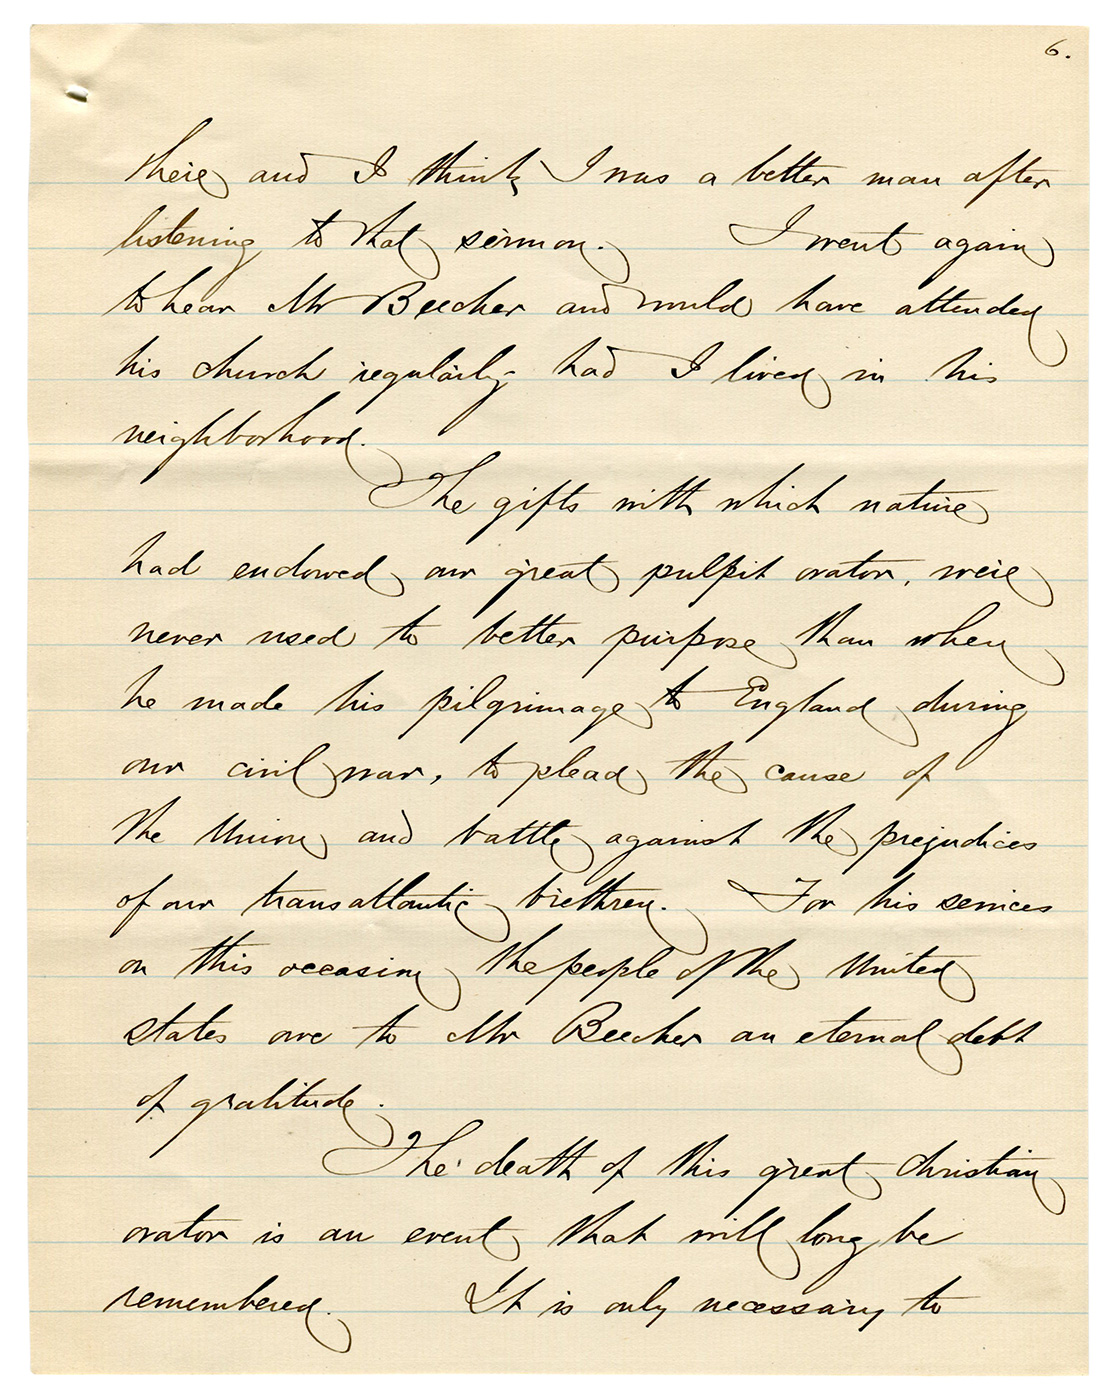 6.
there and I think I was a better man after
listening to that sermon. I went again
to hear Mr Beecher and would have attended
his church regularly had I lived in his
neighborhood.
The gifts with which nature
had endowed our great pulpit orator, were
never used to better purpose than when
he made his pilgrimage to England during
our civil war, to plead the cause of
the Union and battle against the prejudices
of our transatlantic brethren. For his services
on this occasion the people of the United
States owe to Mr Beecher an eternal debt
of gratitude.
The death of this great Christian
orator is an event that will long be
remembered. It is only necessary to